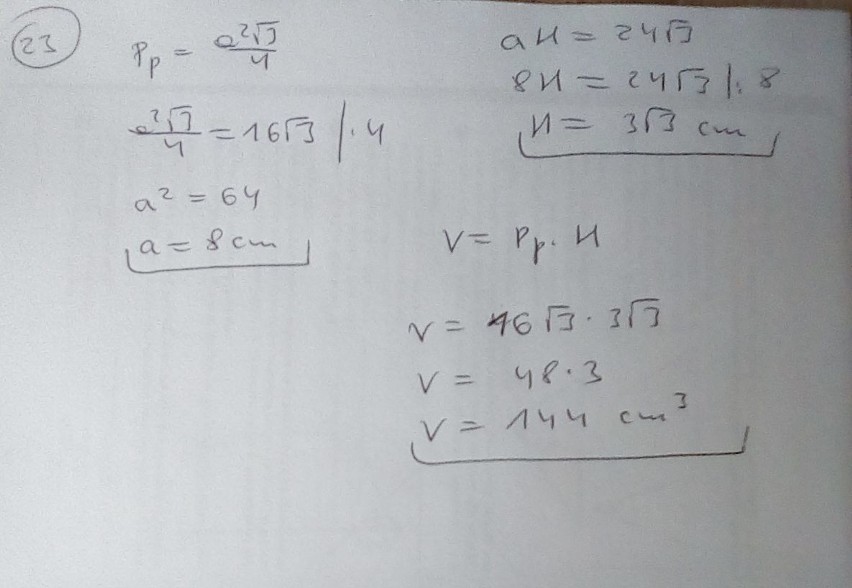 23
Pp = a²√3/4
a²√3/4 = 16√3 /· 4
a² = 64
a = 8 cm
aH = 24√3
8H = 24√3 /: 8
H = 3√3 cm
V = Pp · H
V = 16√3 · 3√3
V = 48 · 3
V = 144 cm³